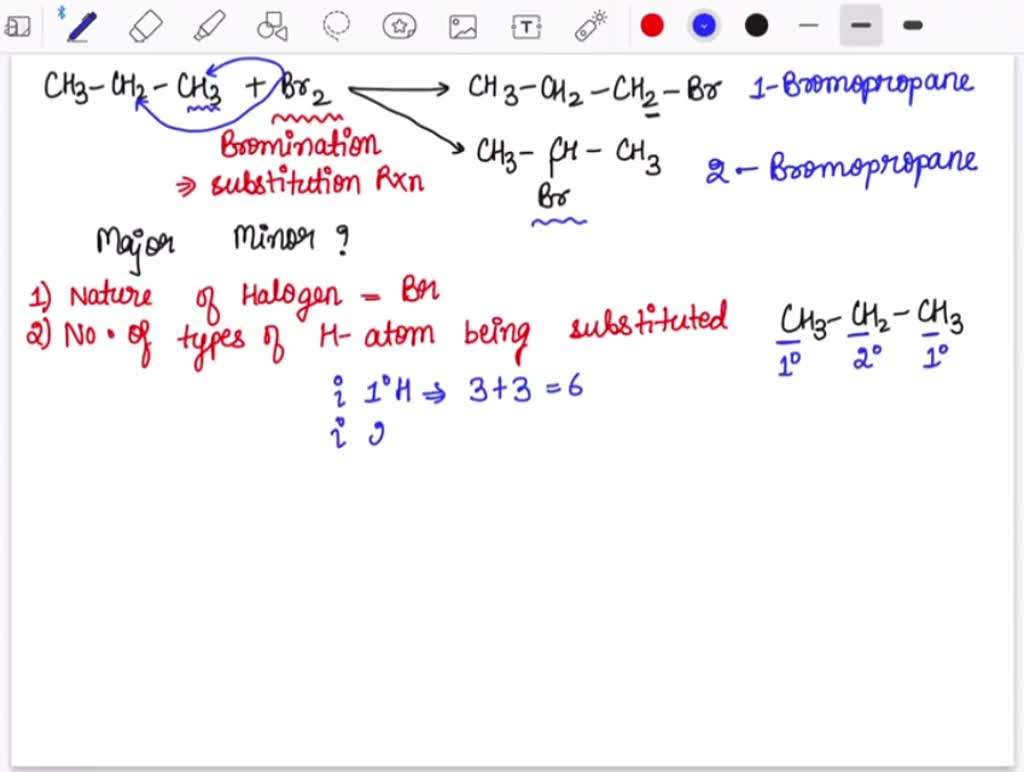 CH3-CH2-CH3 + Br2 → CH3-CH2-CH2-Br 1-Bromopropane
Bromination
⇒ substitution Rxn
CH3- CH - CH3 2-Bromopropane
Br
Major Minor ?
1) Nature of Halogen = Br
2) No. of types of H-atom being substituted
CH3-CH2-CH3
1° 2° 1°
i 1°H ⇒ 3+3=6
i